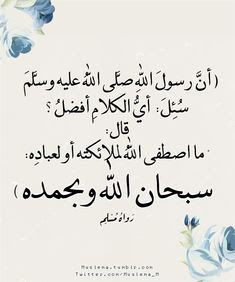 (أنَّ رسولَ اللهِ صلَّى اللهُ عليه وسلَّمَ
سُئِلَ: أيُّ الكلامِ أفضلُ ؟
قال:
ما اصطفى اللهُ لملائكته أو لعبادِه:
سبحان الله وبحمده )
رواهُ مُسْلِم
Muslena.tumblr.com
Twitter.com/Muslena_M